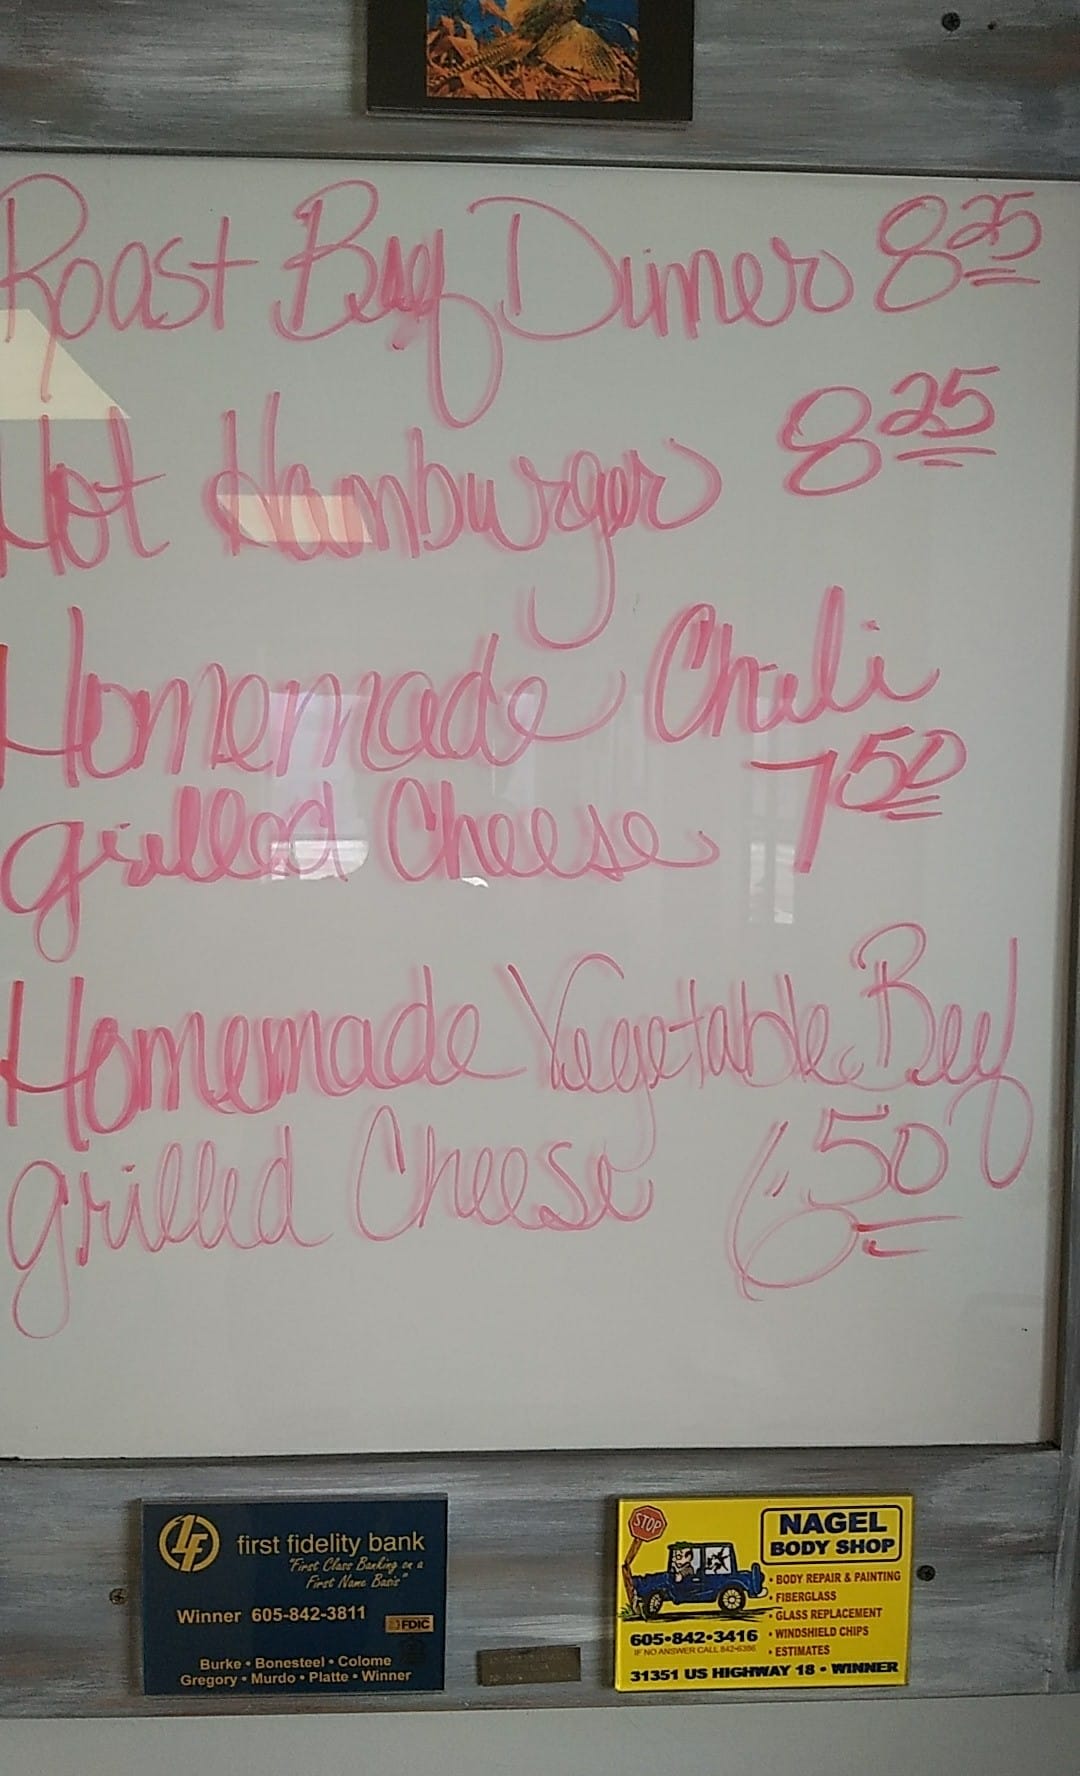 Roast Beef Dinner 8 25
Hot Hamburger 8 25
Homemade Chili
grilled Cheese 7 50
Homemade Vegetable Beef
grilled Cheese 6.50
1F first fidelity bank
"First Class Banking on a
First Name Basis"
Winner 605-842-3811
FDIC
Burke • Bonesteel • Colome
Gregory • Murdo • Platte • Winner
STOP
NAGEL
BODY SHOP
• BODY REPAIR & PAINTING
• FIBERGLASS
• GLASS REPLACEMENT
• WINDSHIELD CHIPS
• ESTIMATES
605•842•3416
IF NO ANSWER CALL 842-6386
31351 US HIGHWAY 18 • WINNER